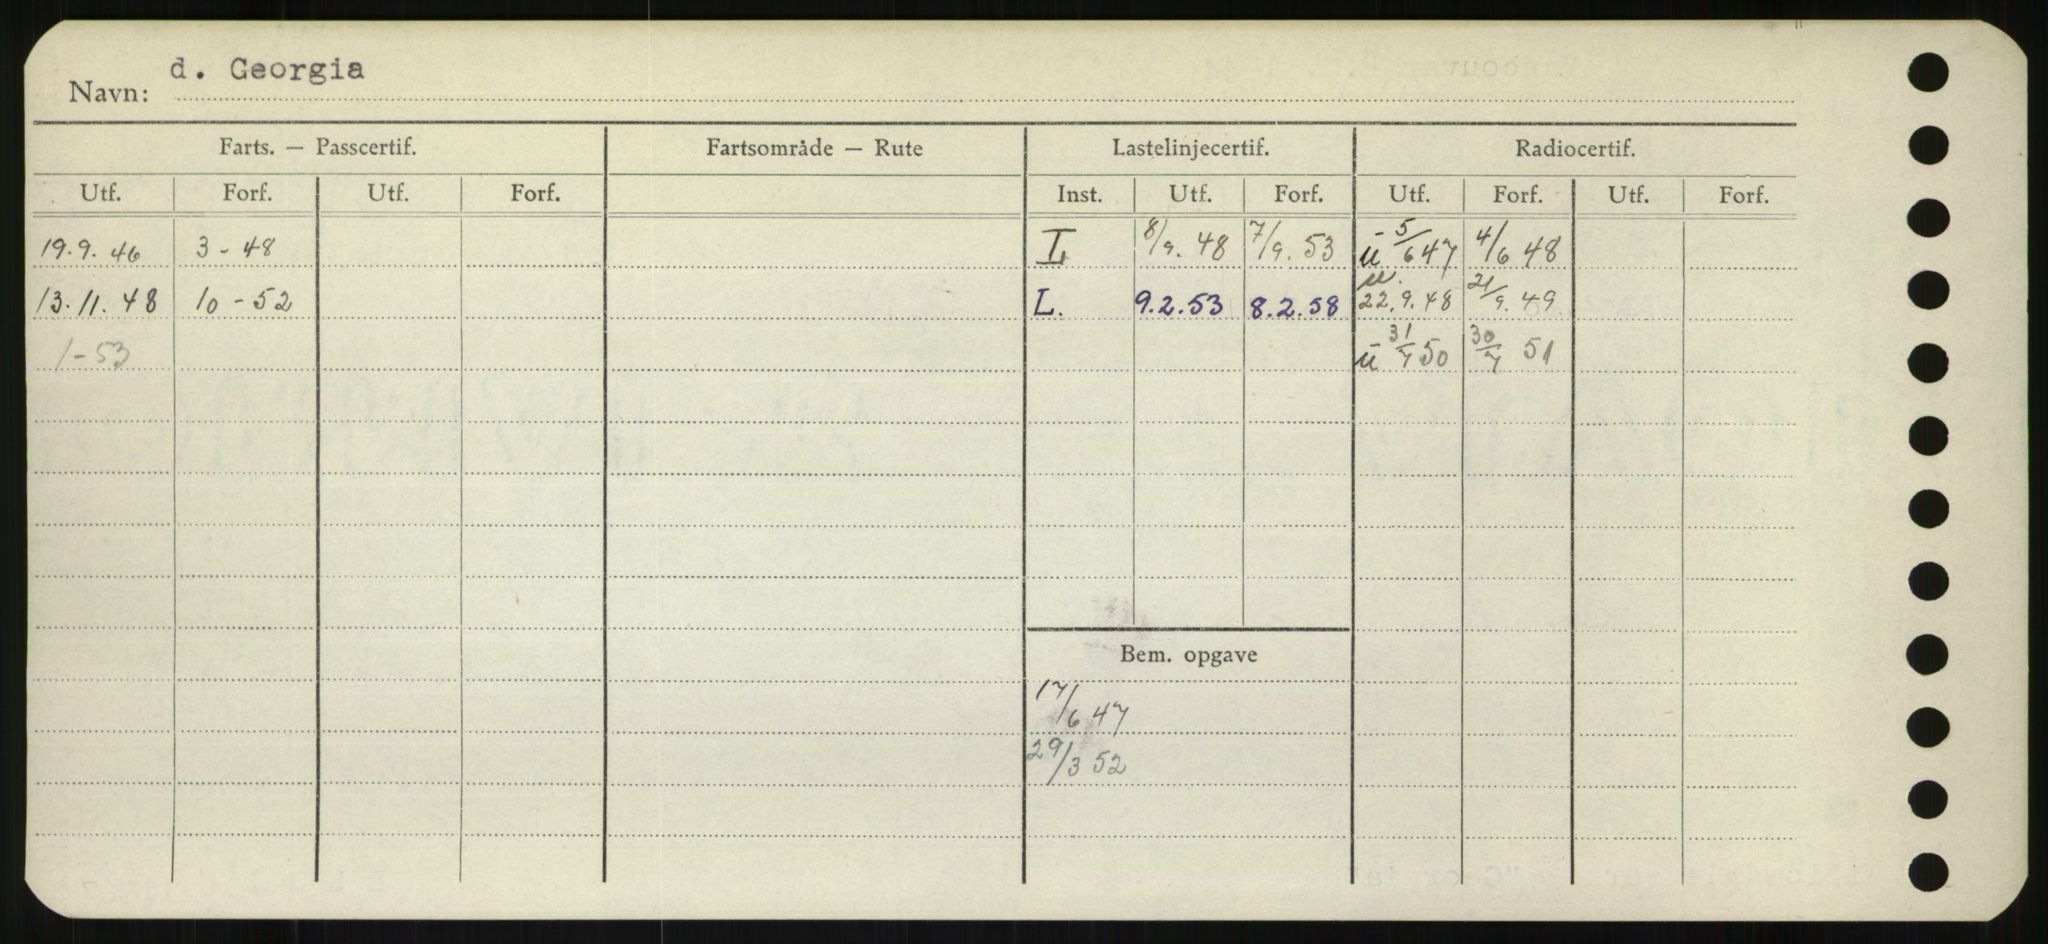 Navn: d. Georgia
Farts. — Passcertif. Fartsområde — Rute Lastelinjecertif. Radiocertif.
Utf. Forf. Utf. Forf. Inst. Utf. Forf. Utf. Forf. Utf. Forf.
19.9.46 3-48 L 8/9.48 7/9.53 ū 5/6 47 4/6 48
13.11.48 10-52 L. 9.2.53 8.2.58 u. 22.9.48 21/9.49
1-53 ū 31/7 50 30/7 51
Bem. opgave
17/6 47
29/3 52